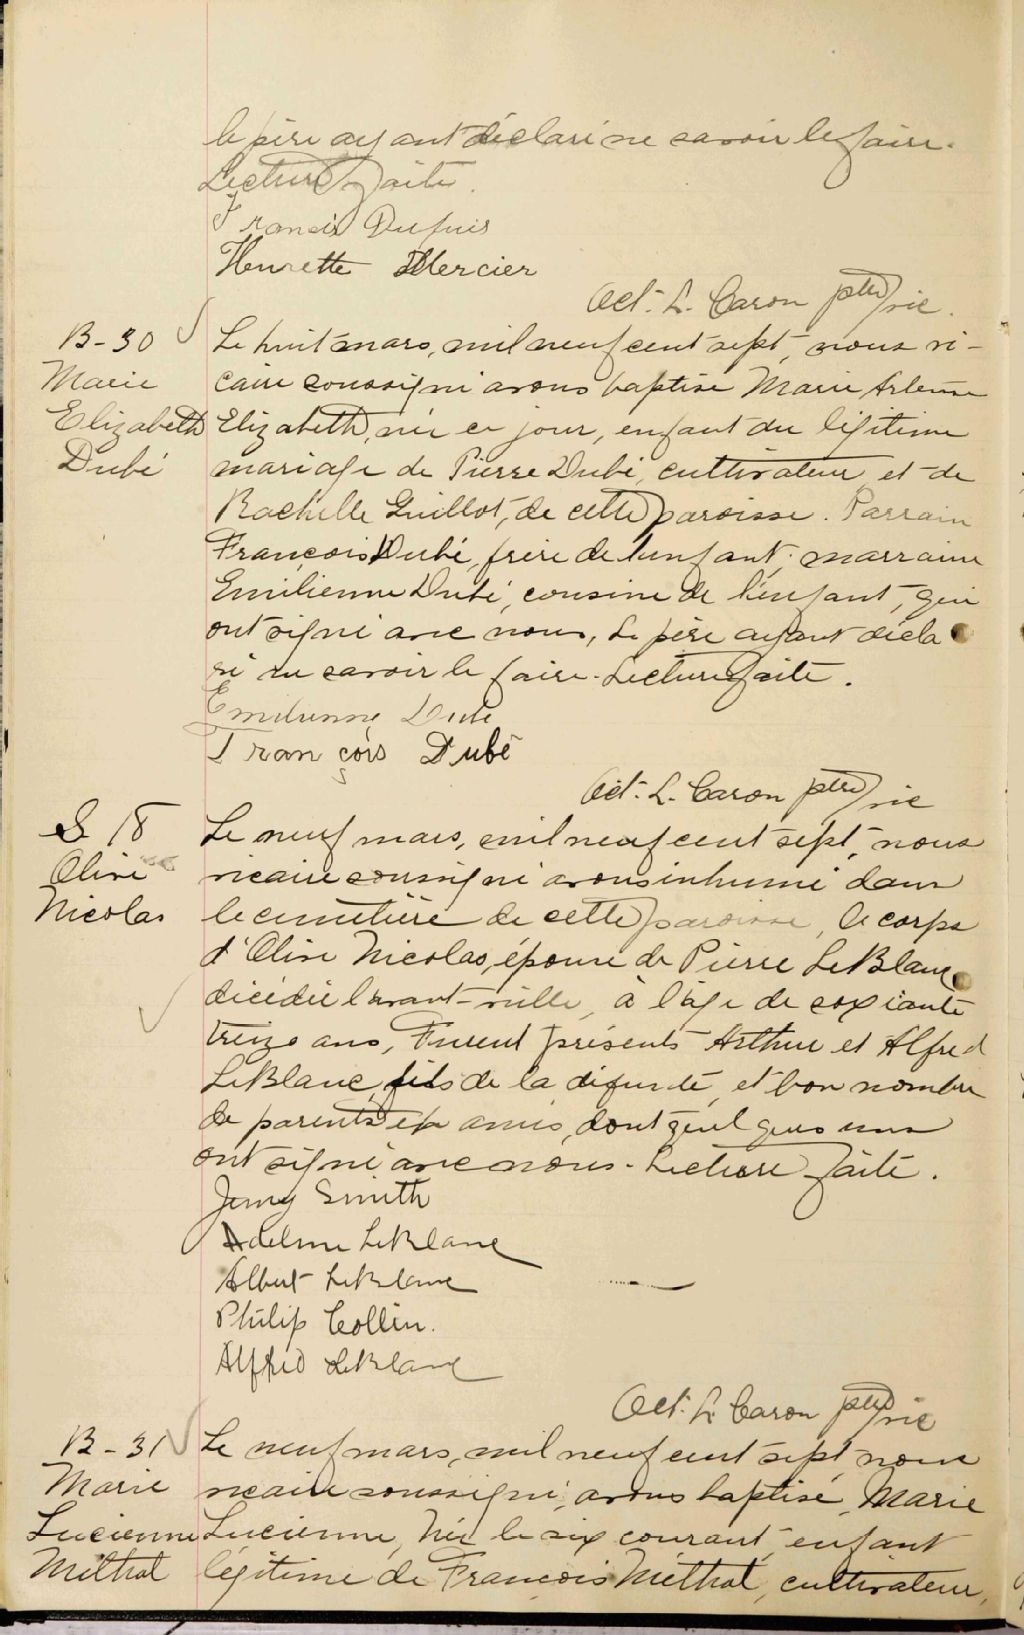 le père ayant déclaré ne savoir le faire.
Lecture faite.
Francis Dupuis
Henrette Mercier
Oct. L. Caron ptre vic.
B-30
Marie
Elizabeth
Dubé
Le huit mars, mil neuf cent sept, nous vi-
caire soussigné avons baptisé Marie Arlene
Elizabeth, née ce jour, enfant du légitime
mariage de Pierre Dubé, cultivateur et de
Rachelle Guillot, de cette paroisse. Parrain
François Dubé, frère de l'enfant; marraine
Emilienne Dubé, cousine de l'enfant, qui
ont signé avec nous, le père ayant décla
ré ne savoir le faire. Lecture faite.
Emilienne Dube
François Dubé
Oct. L. Caron ptre vic
S 18
Olive
Nicolas
Le neuf mars, mil neuf cent sept, nous
vicaire soussigné avons inhumé dans
le cimetière de cette paroisse, le corps
d'Olive Nicolas, épouse de Pierre LeBlanc
décédée l'avant-veille, à l'âge de soixiante
treize ans, Furent présents Arthur et Alfred
LeBlanc, fils de la défunte, et bon nombre
de parents et amis, dont quelques uns
ont signé avec nous. Lecture faite.
Jemy Smith
Adelme LeBlanc
Albert LeBlanc
Philip Collin.
Alfred LeBlanc
Oct. L. Caron ptre vic
B-31
Marie
Lucienne
Méthot
Le neuf mars, mil neuf cent sept, nous
vicaire soussigné, avons baptisé, Marie
Lucienne, née le six courant, enfant
légitime de François Méthot, cultivateur,